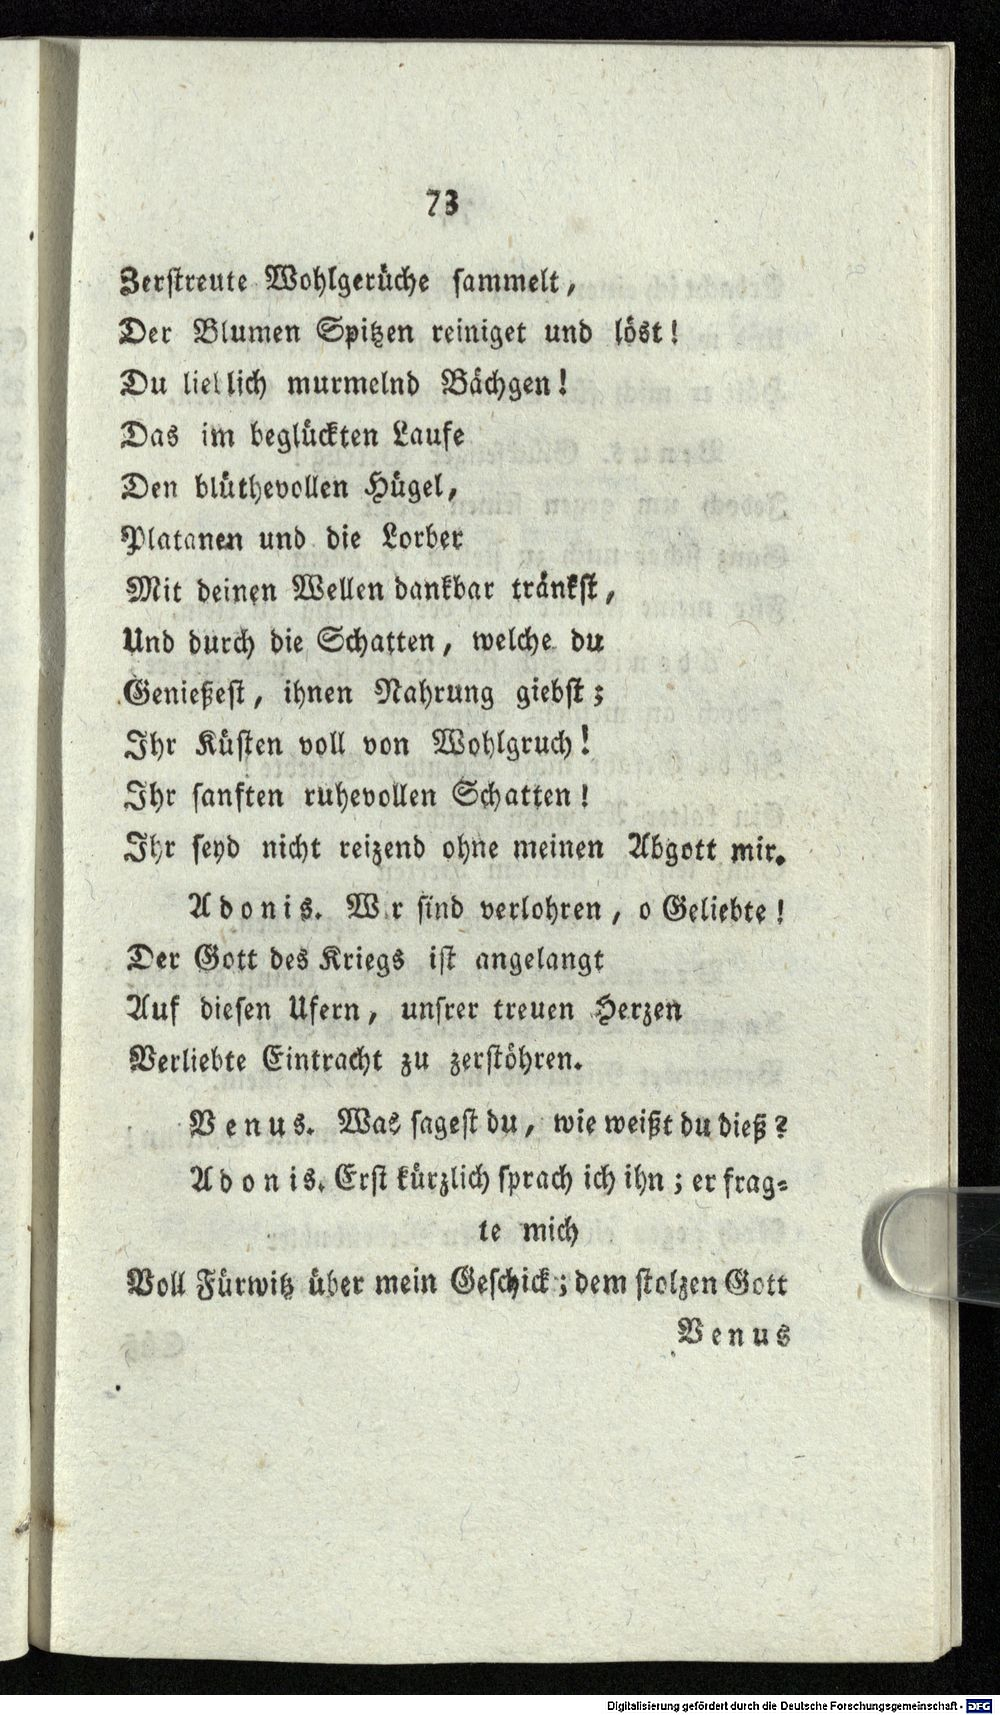 73
Zerstreute Wohlgerüche sammelt,
Der Blumen Spitzen reiniget und löst!
Du lieblich murmelnd Bächgen!
Das im beglückten Laufe
Den blüthevollen Hügel,
Platanen und die Lorber
Mit deinen Wellen dankbar tränkst,
Und durch die Schatten, welche du
Genießest, ihnen Nahrung giebst;
Ihr Küsten voll von Wohlgruch!
Ihr sanften ruhevollen Schatten!
Ihr seyd nicht reizend ohne meinen Abgott mir.
Adonis. Wir sind verlohren, o Geliebte!
Der Gott des Kriegs ist angelangt
Auf diesen Ufern, unsrer treuen Herzen
Verliebte Eintracht zu zerstöhren.
Venus. Was sagest du, wie weißt du dieß?
Adonis. Erst kürzlich sprach ich ihn; er frag-
te mich
Voll Fürwitz über mein Geschick; dem stolzen Gott
Venus
Digitalisierung gefördert durch die Deutsche Forschungsgemeinschaft - DFG